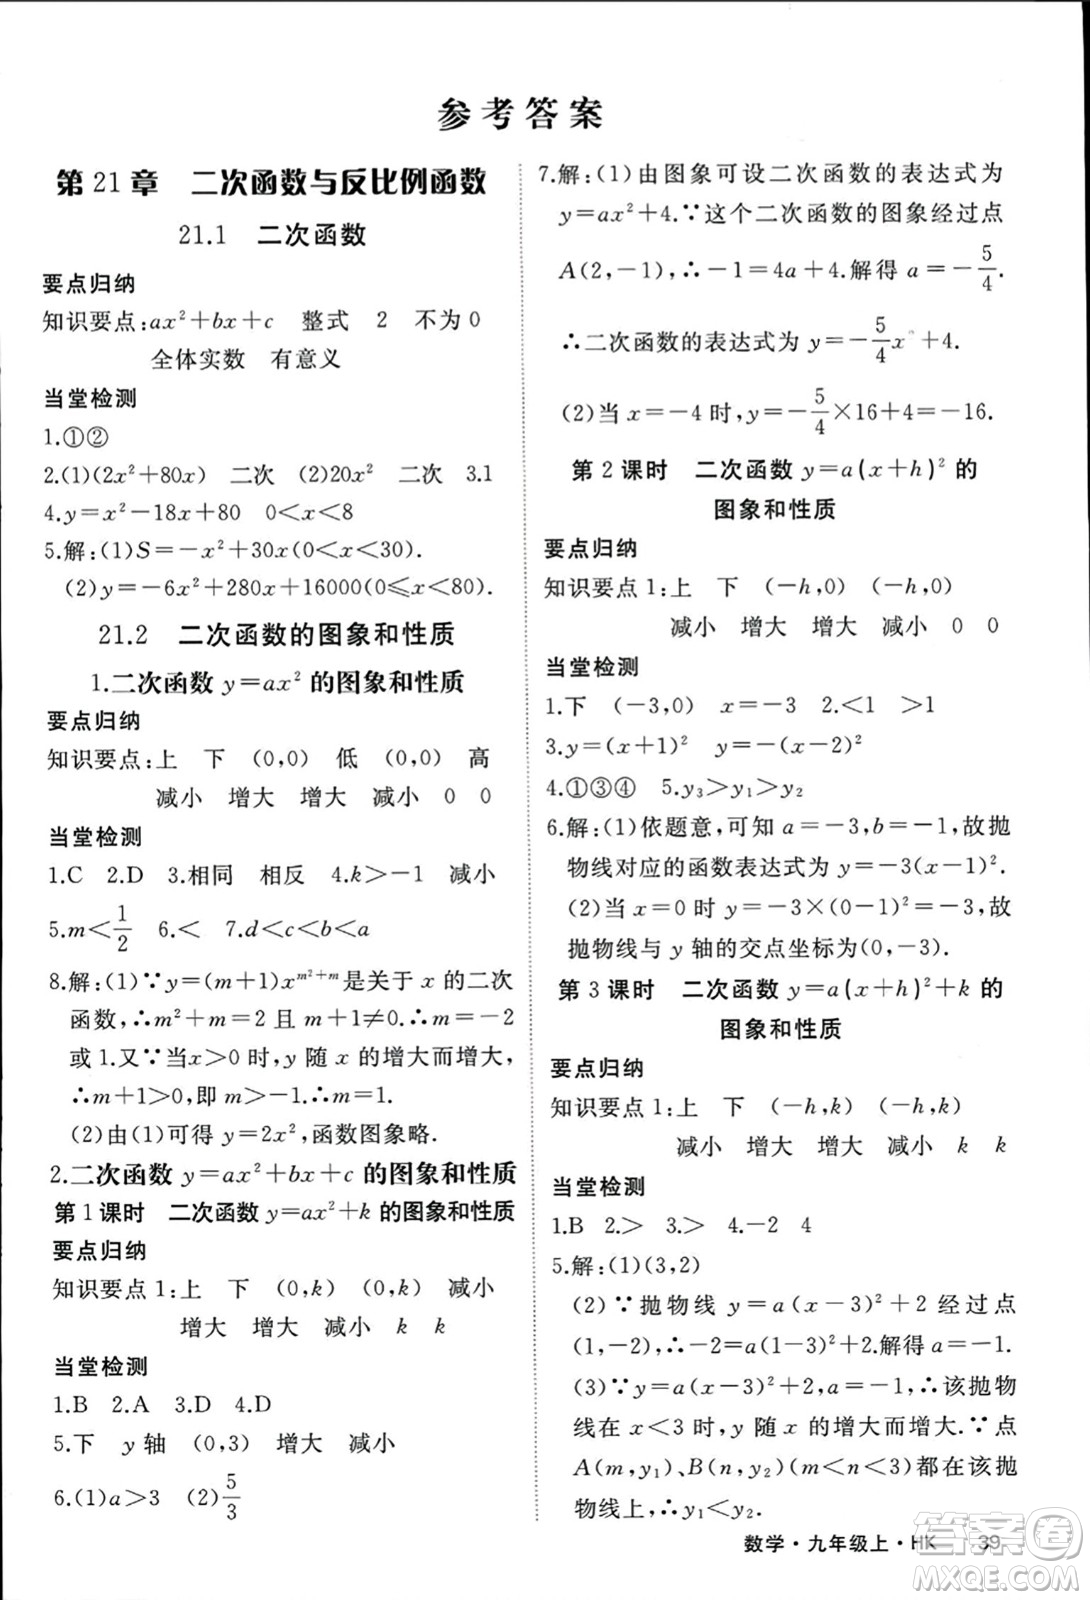 参考答案
第 21 章　二次函数与反比例函数
21.1　二次函数
要点归纳
知识要点:ax²+bx+c　整式　2　不为0
全体实数　有意义
当堂检测
1.①②
2.(1)(2x²+80x)　二次　(2)20x²　二次　3.1
4.y=x²-18x+80　0<x<8
5.解:(1)S=-x²+30x(0<x<30).
(2)y=-6x²+280x+16000(0≤x<80).
21.2　二次函数的图象和性质
1.二次函数 y=ax² 的图象和性质
要点归纳
知识要点:上　下　(0,0)　低　(0,0)　高
减小　增大　增大　减小　0　0
当堂检测
1.C　2.D　3.相同　相反　4.k>-1　减小
5.m<1/2　6.<　7.d<c<b<a
8.解:(1)∵y=(m+1)x^(m²+m)是关于 x 的二次
函数,∴m²+m=2 且 m+1≠0.∴m=-2
或 1.又∵当x>0 时,y 随 x 的增大而增大,
∴m+1>0,即 m>-1.∴m=1.
(2)由(1)可得 y=2x²,函数图象略.
2.二次函数 y=ax²+bx+c 的图象和性质
第 1 课时　二次函数 y=ax²+k 的图象和性质
要点归纳
知识要点 1:上　下　(0,k)　(0,k)　减小
增大　增大　减小　k　k
当堂检测
1.B　2.A　3.D　4.D
5.下　y 轴　(0,3)　增大　减小
6.(1)a>3　(2)5/3
7.解:(1)由图象可设二次函数的表达式为
y=ax²+4.∵这个二次函数的图象经过点
A(2,-1),∴-1=4a+4.解得 a=-5/4.
∴二次函数的表达式为 y=-5/4x²+4.
(2)当 x=-4 时,y=-5/4×16+4=-16.
第 2 课时　二次函数 y=a(x+h)² 的
图象和性质
要点归纳
知识要点 1:上　下　(-h,0)　(-h,0)
减小　增大　增大　减小　0　0
当堂检测
1.下　(-3,0)　x=-3　2.<1　>1
3.y=(x+1)²　y=-(x-2)²
4.①③④　5.y₃>y₁>y₂
6.解:(1)依题意,可知 a=-3,b=-1,故抛
物线对应的函数表达式为 y=-3(x-1)².
(2)当 x=0 时 y=-3×(0-1)²=-3,故
抛物线与 y 轴的交点坐标为(0,-3).
第 3 课时　二次函数 y=a(x+h)²+k 的
图象和性质
要点归纳
知识要点 1:上　下　(-h,k)　(-h,k)
减小　增大　增大　减小　k　k
当堂检测
1.B　2.>　3.>　4.-2　4
5.解:(1)(3,2)
(2)∵抛物线 y=a(x-3)²+2 经过点
(1,-2),∴-2=a(1-3)²+2.解得 a=-1.
(3)∵y=a(x-3)²+2,a=-1,∴该抛物
线在 x<3 时,y 随 x 的增大而增大.∵点
A(m,y₁)、B(n,y₂)(m<n<3)都在该抛
物线上,∴y₁<y₂.
数学·九年级上·HK　39
答案卷
MXQE.COM